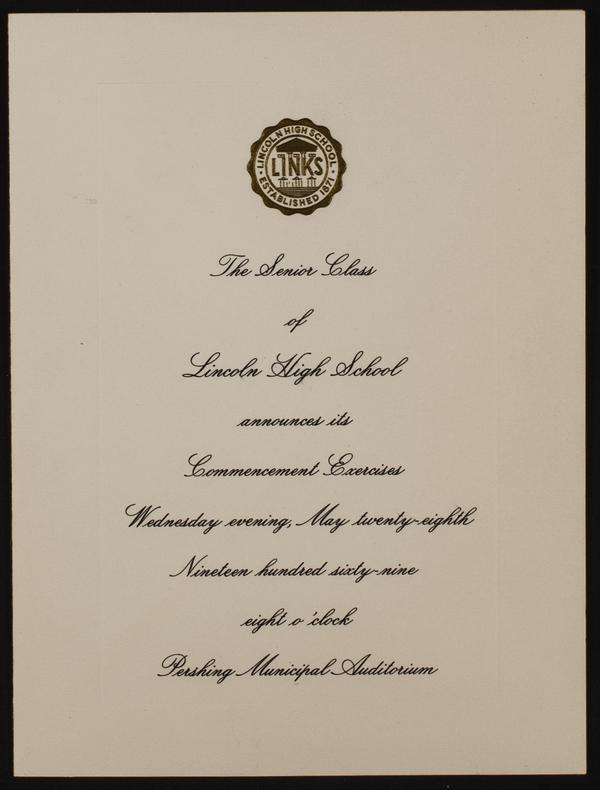 LINCOLN HIGH SCHOOL
LINKS
ESTABLISHED 1871
The Senior Class
of
Lincoln High School
announces its
Commencement Exercises
Wednesday evening, May twenty-eighth
Nineteen hundred sixty-nine
eight o'clock
Pershing Municipal Auditorium